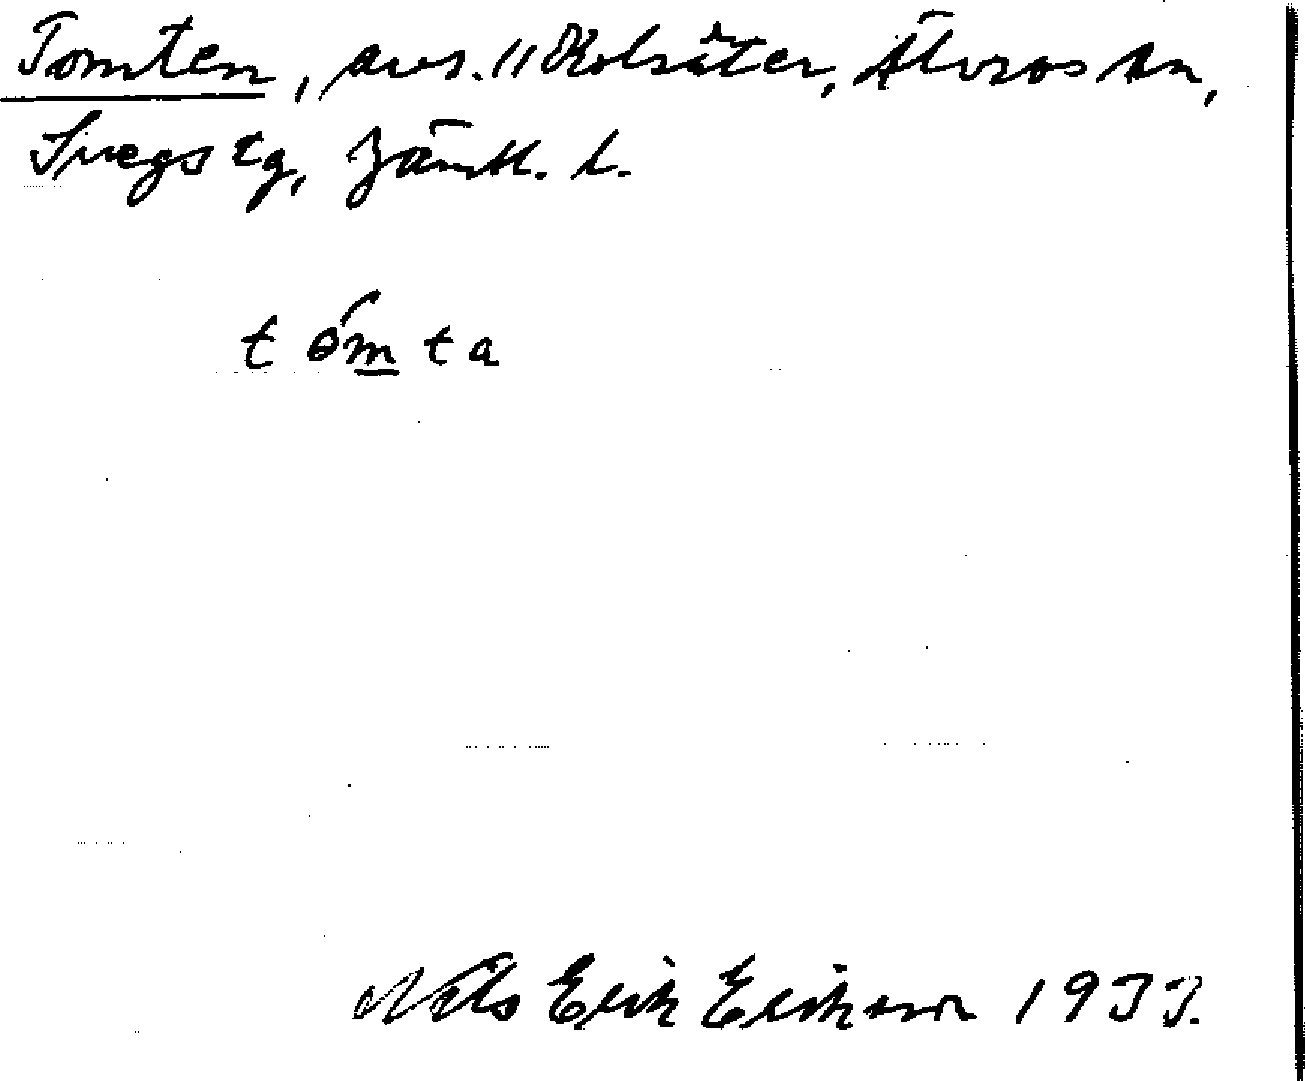 Tomten, avs. // Kolsäter, Älvros sn,
Svegs tg, Jämtl. l.
t ɵ́m̲ t a
Nils Erik Erikson 1933.